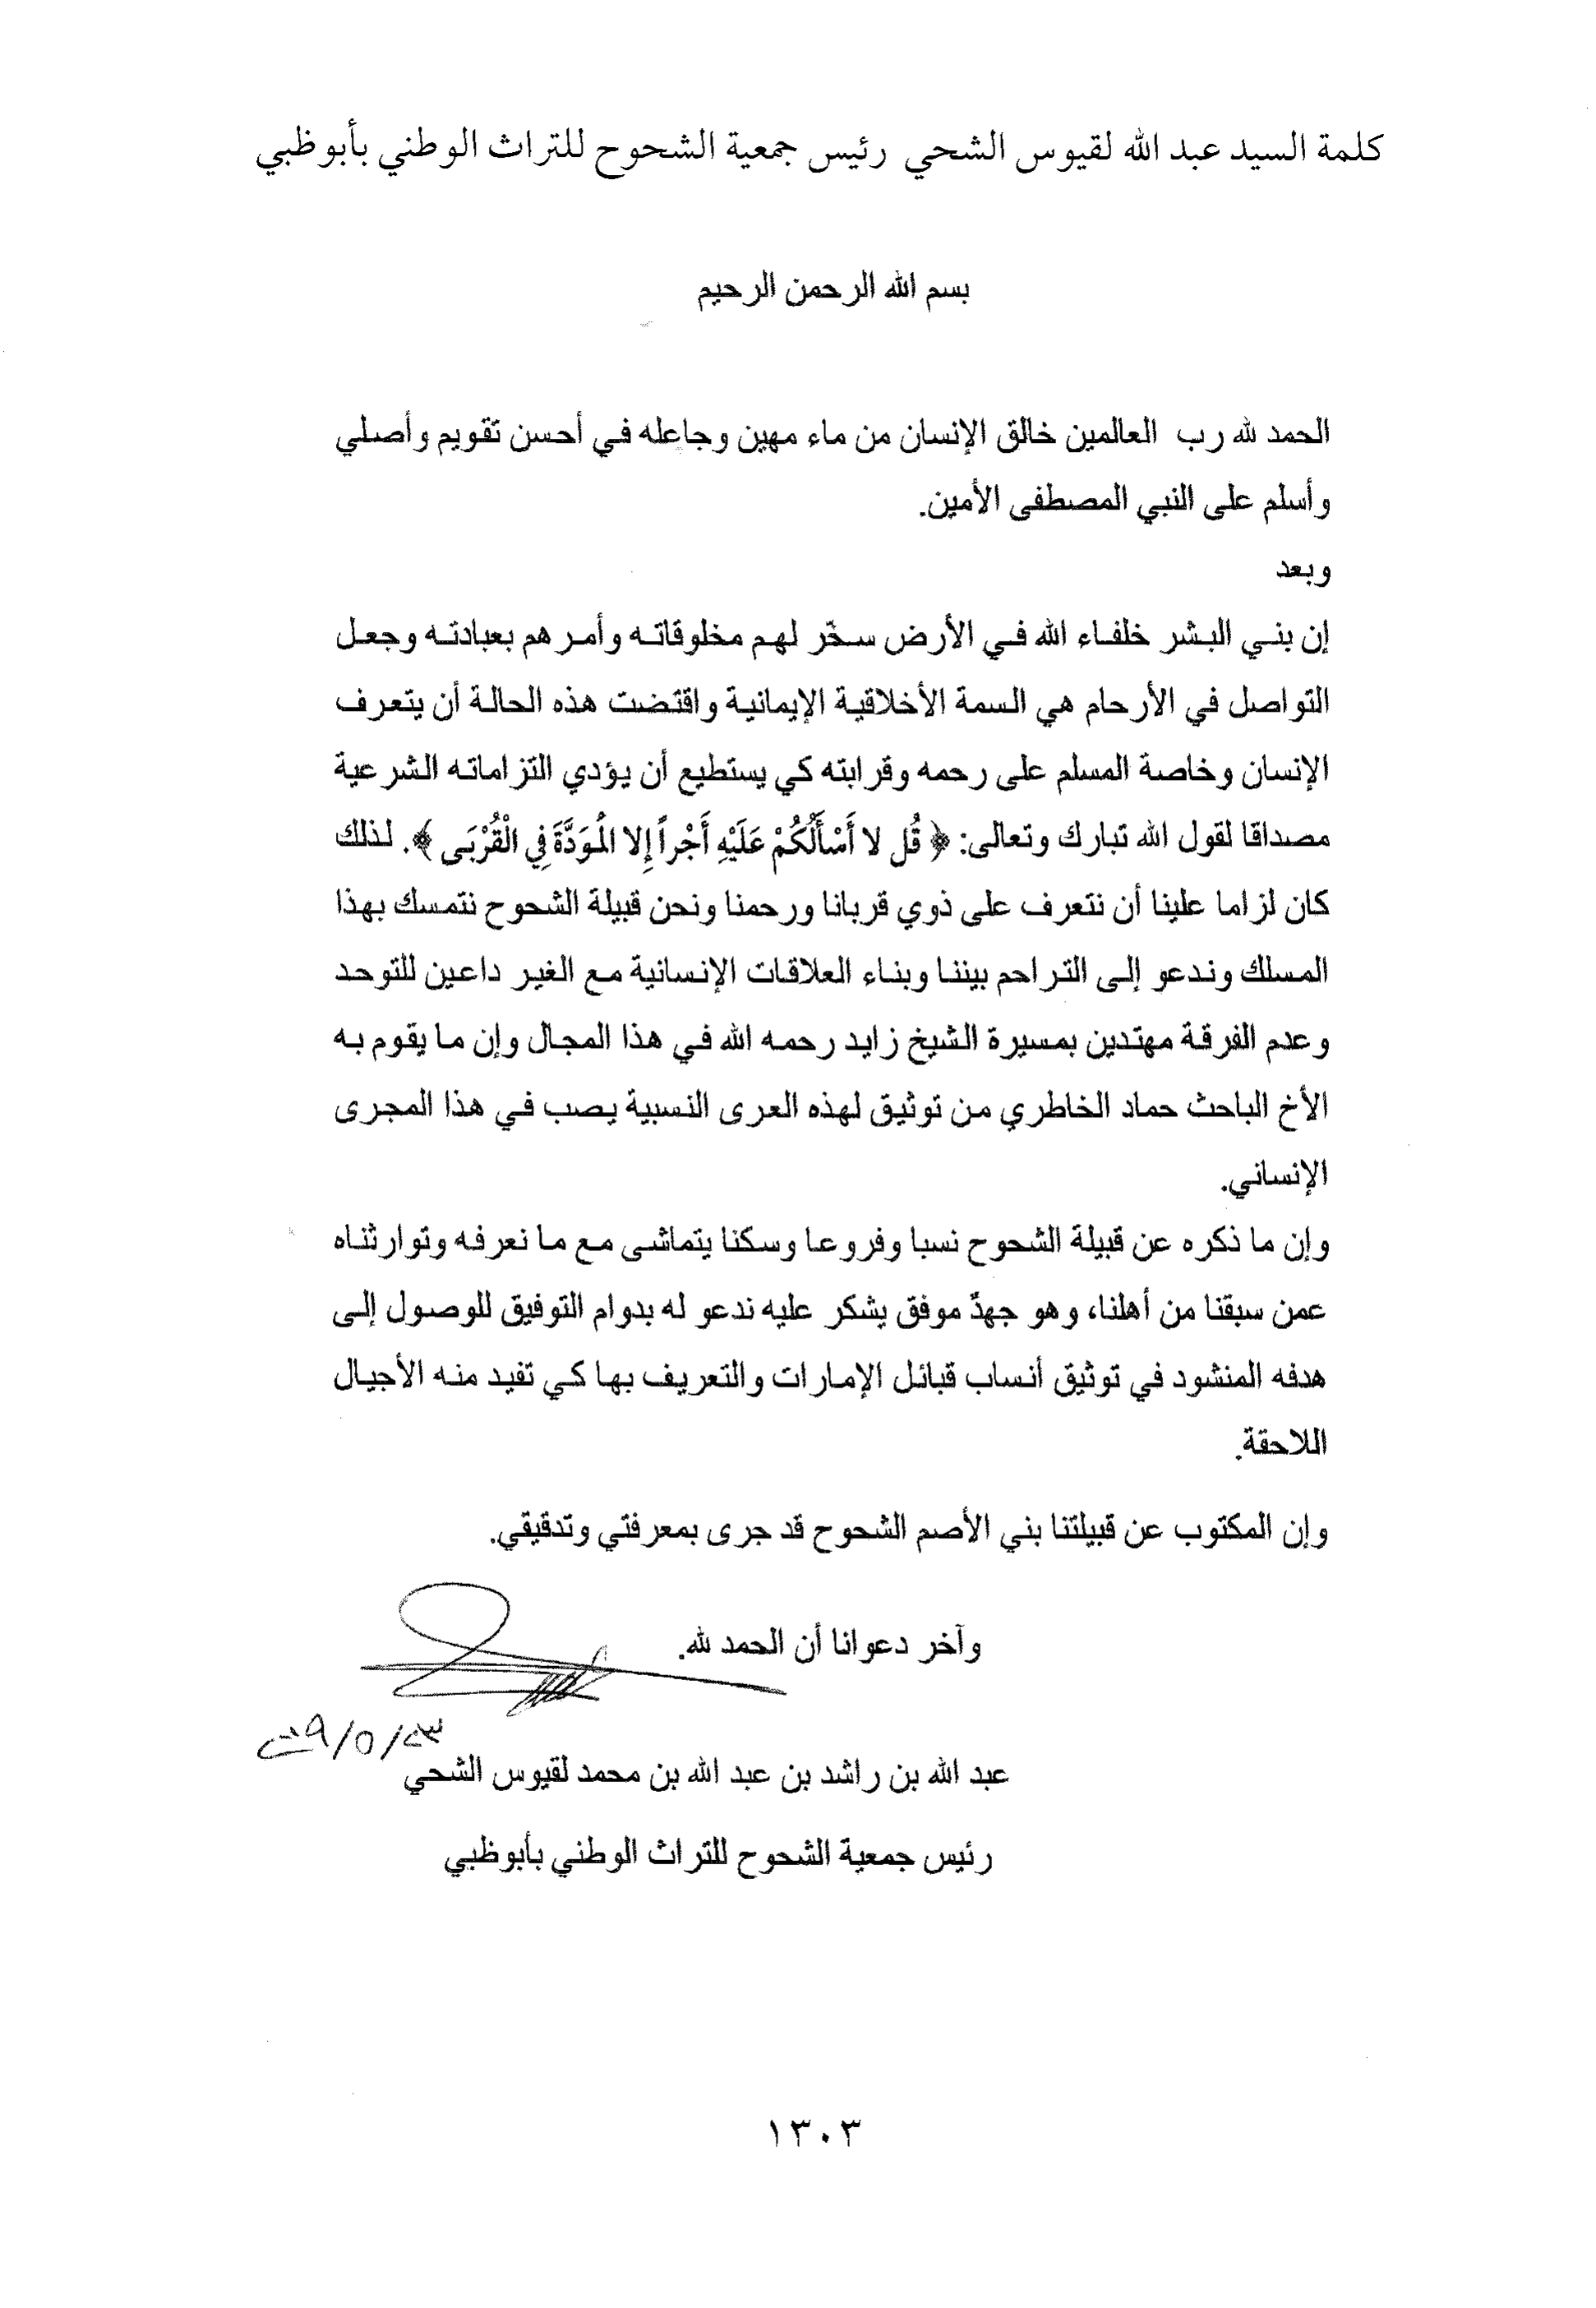 كلمة السيد عبد الله لقيوس الشحي رئيس جمعية الشحوح للتراث الوطني بأبوظبي
بسم الله الرحمن الرحيم
الحمد لله رب العالمين خالق الإنسان من ماء مهين وجاعله في أحسن تقويم وأصلي
وأسلم على النبي المصطفى الأمين.
وبعد
إن بني البشر خلفاء الله في الأرض سخّر لهم مخلوقاته وأمرهم بعبادته وجعل
التواصل في الأرحام هي السمة الأخلاقية الإيمانية واقتضت هذه الحالة أن يتعرف
الإنسان وخاصة المسلم على رحمه وقرابته كي يستطيع أن يؤدي التزاماته الشرعية
مصداقا لقول الله تبارك وتعالى: ﴿ قُل لا أَسْأَلُكُمْ عَلَيْهِ أَجْراً إِلا الْمَوَدَّةَ فِي الْقُرْبَى ﴾. لذلك
كان لزاما علينا أن نتعرف على ذوي قربانا ورحمنا ونحن قبيلة الشحوح نتمسك بهذا
المسلك وندعو إلى التراحم بيننا وبناء العلاقات الإنسانية مع الغير داعين للتوحد
وعدم الفرقة مهتدين بمسيرة الشيخ زايد رحمه الله في هذا المجال وإن ما يقوم به
الأخ الباحث حماد الخاطري من توثيق لهذه العرى النسبية يصب في هذا المجرى
الإنساني.
وإن ما ذكره عن قبيلة الشحوح نسبا وفروعا وسكنا يتماشى مع ما نعرفه وتوارثناه
عمن سبقنا من أهلنا، وهو جهدٌ موفق يشكر عليه ندعو له بدوام التوفيق للوصول إلى
هدفه المنشود في توثيق أنساب قبائل الإمارات والتعريف بها كي تفيد منه الأجيال
اللاحقة.
وإن المكتوب عن قبيلتنا بني الأصم الشحوح قد جرى بمعرفتي وتدقيقي.
وآخر دعوانا أن الحمد لله.
عبد الله بن راشد بن عبد الله بن محمد لقيوس الشحي
رئيس جمعية الشحوح للتراث الوطني بأبوظبي
١٣٠٣